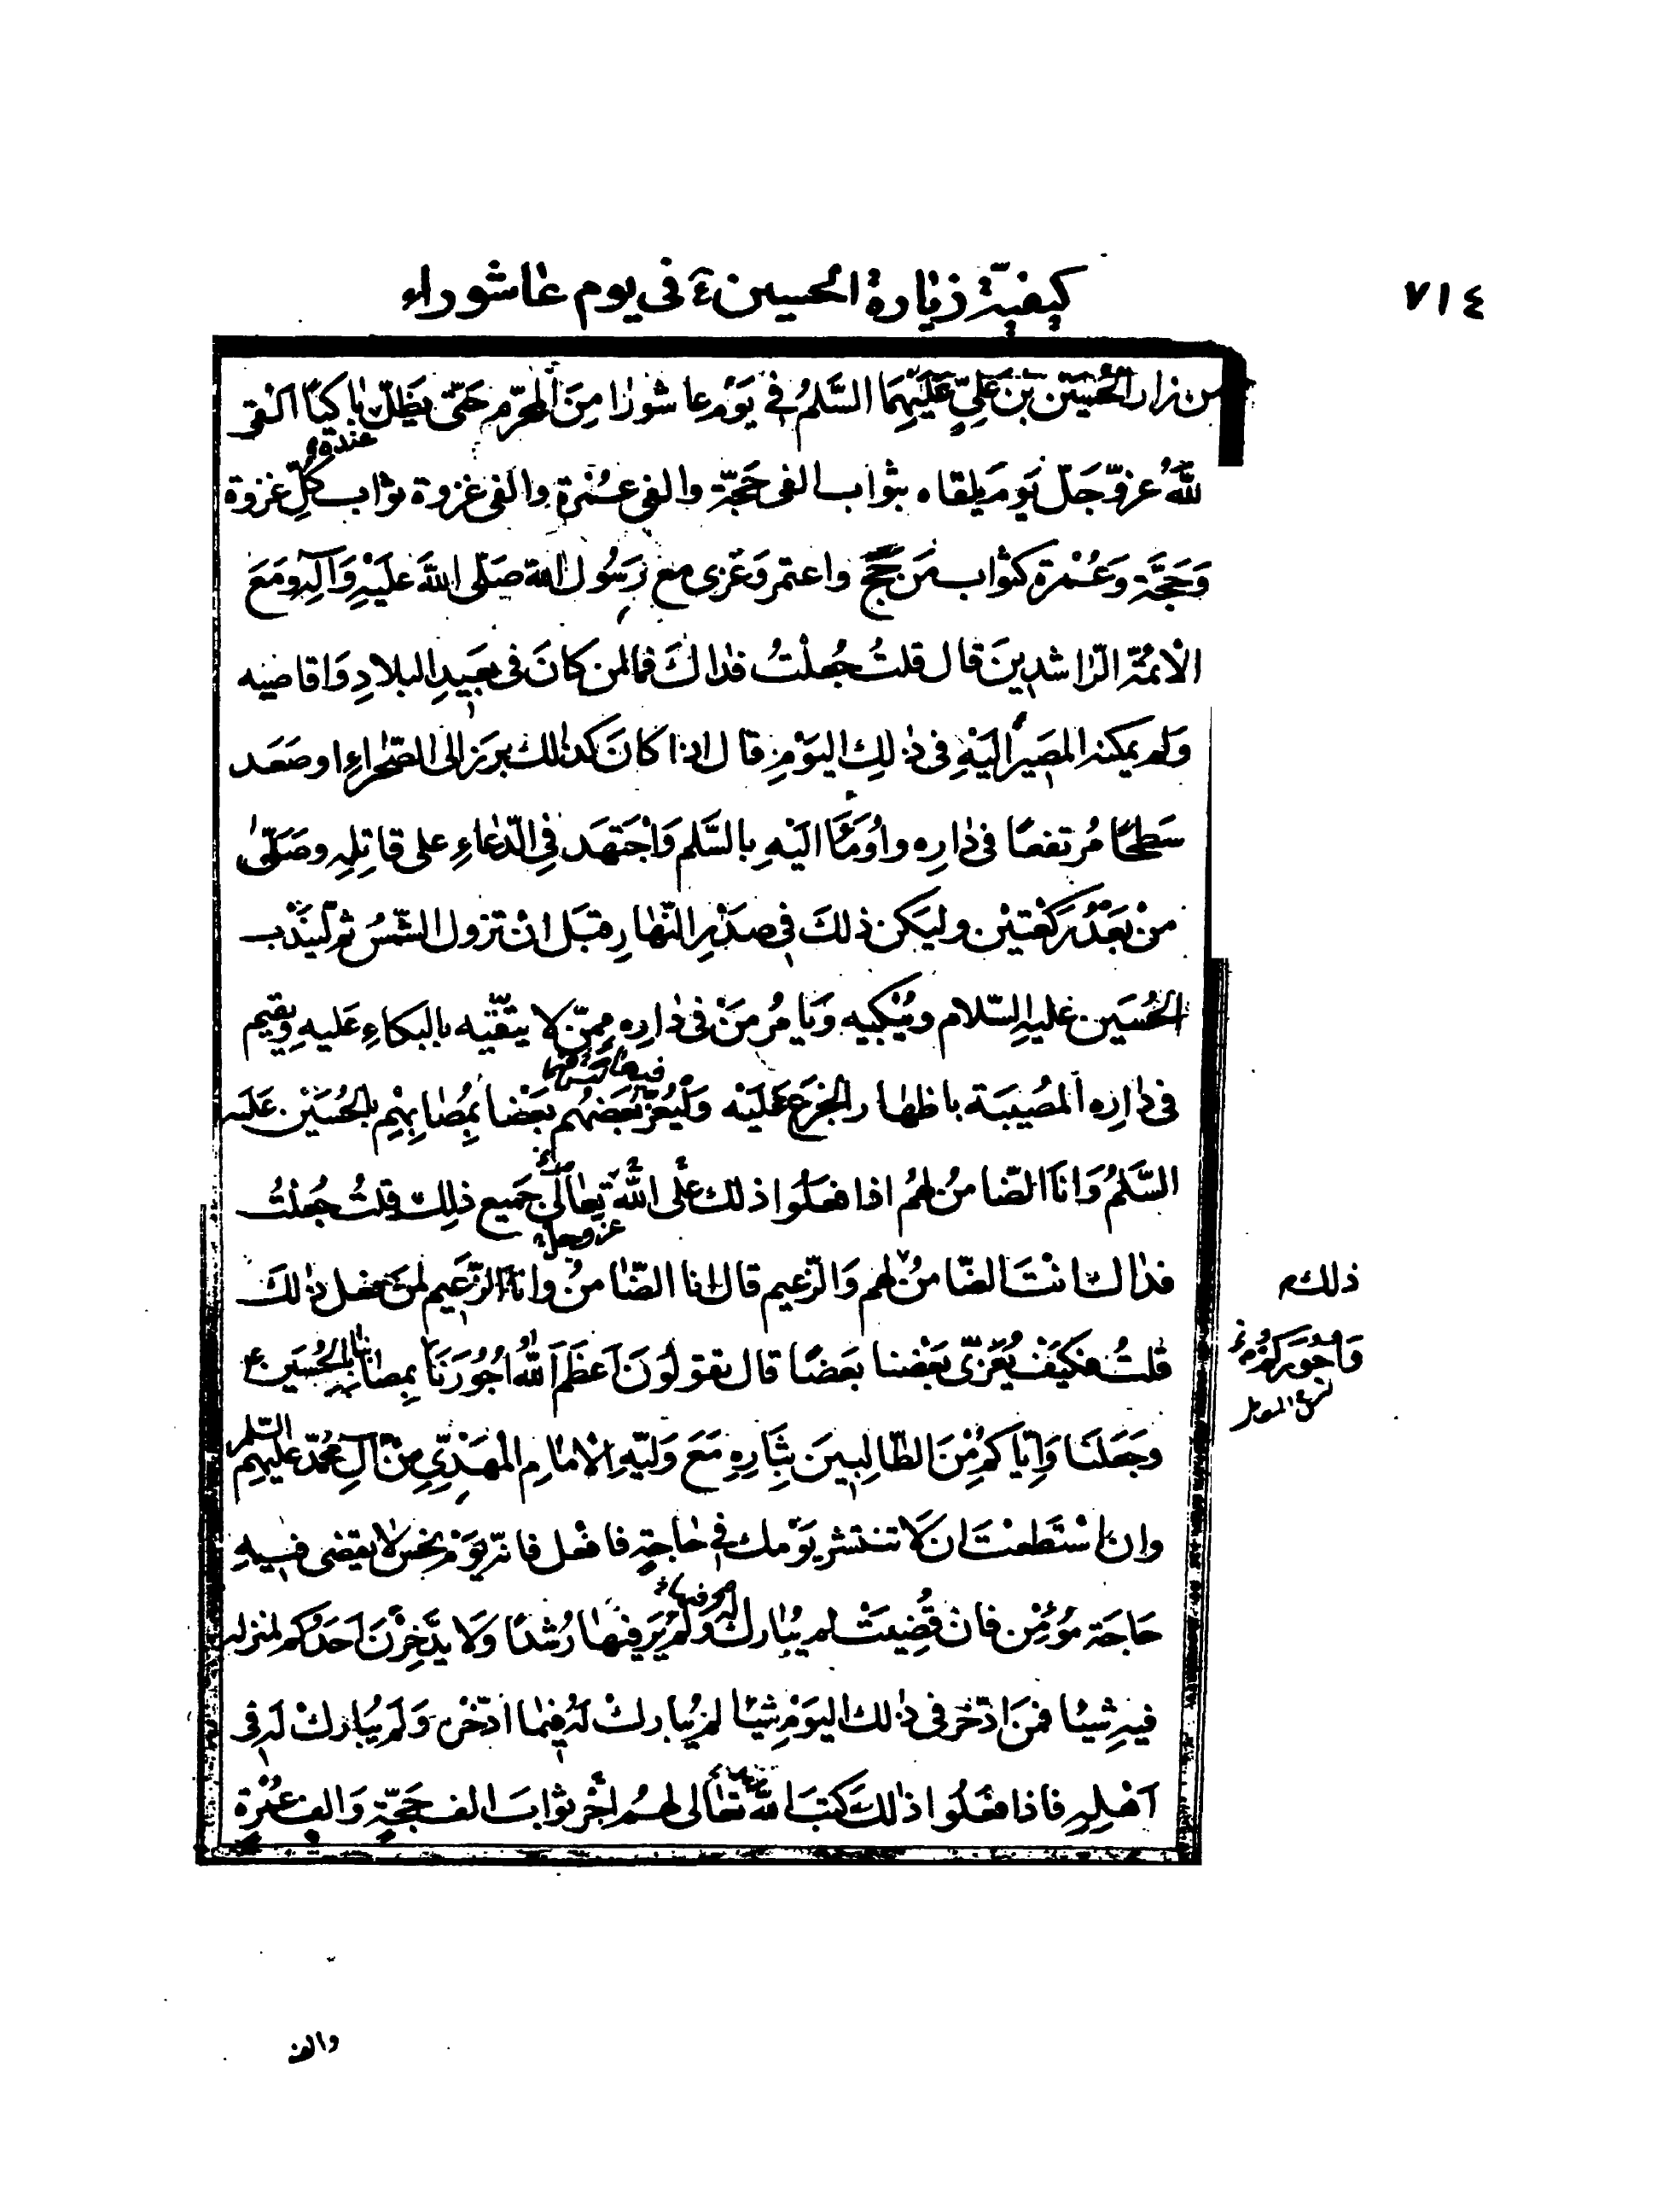 ٧١٤
كيفيّة زيارة الحسين ع في يوم عاشوراء
من زار الحُسَيْن بْن عَلِيٍّ عَلَيْهِمَا السَّلمُ في يَوْمِ عاشورا مِنَ المحرّم حَتّى يَظَلّ باكيًا القى
عنده
للّٰهَ عزّ وَجَلّ يَومَ يَلقاه بثواب الفى حَجّة والفى عمْرة والفى غزوة ثواب كُلِّ غزوة
وَحَجَّة وَعُمْرة كثواب مَن حَجَّ واعتمر وَغزى مع رَسُول الله صَلّى اللهَ عَلَيْهِ وَآلِهِ ومَعَ
الْائمّة الرّاشدِينَ قال قلتُ جُعلْتُ فداكَ فما لمن كانَ فى بَعيدِ البلادِ وَاقاصيه
وَلم يمكنه المصَير اليَهِ فى ذلِكِ اليَوْمِ قال اذا كانَ كذلك برزَ الى الصّحراءِ او صَعَد
سَطحًا مُرتفعًا فى دٰارِه واوُمَأَ اليَهِ بالسَّلمِ وَاجْتَهَد فِى الدّعاءِ على قاتِلِهِ وصَلّى
منْ بَعَدُ رَكْعَتيْن وليَكن ذلكَ فى صدَرِ النّهارِ قبَل انْ تزول الشّمسُ ثم ليَندُب
الحُسَين عَليهِ السّلام ويُبْكيه وَيَامُر مَنْ فى دٰارِه ممِنّ لا يتّقيه بالبكاءِ عَليهِ ويقيم
فى دٰارِه المصُيبَة باظهار الجزع عَلَيْه وَليُعَزّ بَعَضهُم بَعْضا بمُصٰابِهْم بالحُسَيْن عَليَه
السَّلمُ وَانَا الضّامنُ لهمُ اذا فعَلُوا ذلكَ عَلى اللّٰه تعٰالى جَميع ذلِك قلتُ جُعلْتُ
عز وجل
فداك انْتَ الضّامنُ لهم وَالزّعيم قال انا الضّامنُ وانَا الزّعَيم لمنَ فعَل ذلكَ
ذلك
قلتُ فكيَف يُعَزّى بَعْضنا بَعضًا قال تقولُونَ اَعظَمَ اللّٰهُ اُجُورَنَا بمصابنا بالحُسَين ع
وجَعَلنَا وَايّاكمُ مِنَ الطّالِبينَ بثَارِهِ مَعَ وَليّهِ الْامٰامِ المْهَدِيِّ مِنْ آلِ محمّد عليهم السّلم
وان اسْتَطعْتَ ان لَا تنتشر يَوْمك فى حٰاجةٍ فافعْل فانّه يَوْم نحس لا يقضى فيهِ
حَاجَة مُؤمْن فان قُضِيَتْ لم يُبٰارك لَه وَلَمْ يَرَ فيهٰا رُشدًا وَلَا يدَّخِرْنَ اَحَدُكم لمنزله
فيهِ شيئا فمَن ادّخَر فى ذلك اليَوْمِ شيئًا لم يُبارَك لَهُ فيمٰا ادّخَر وَلَم يُبٰارَكْ لَه فى
اَهْلِهِ فاذا فعَلُوا ذلكَ كتبَ اللّٰه تعٰالى لهمُ اجْر ثوابَ الف حَجّةٍ وَالف عُمْرة
والف